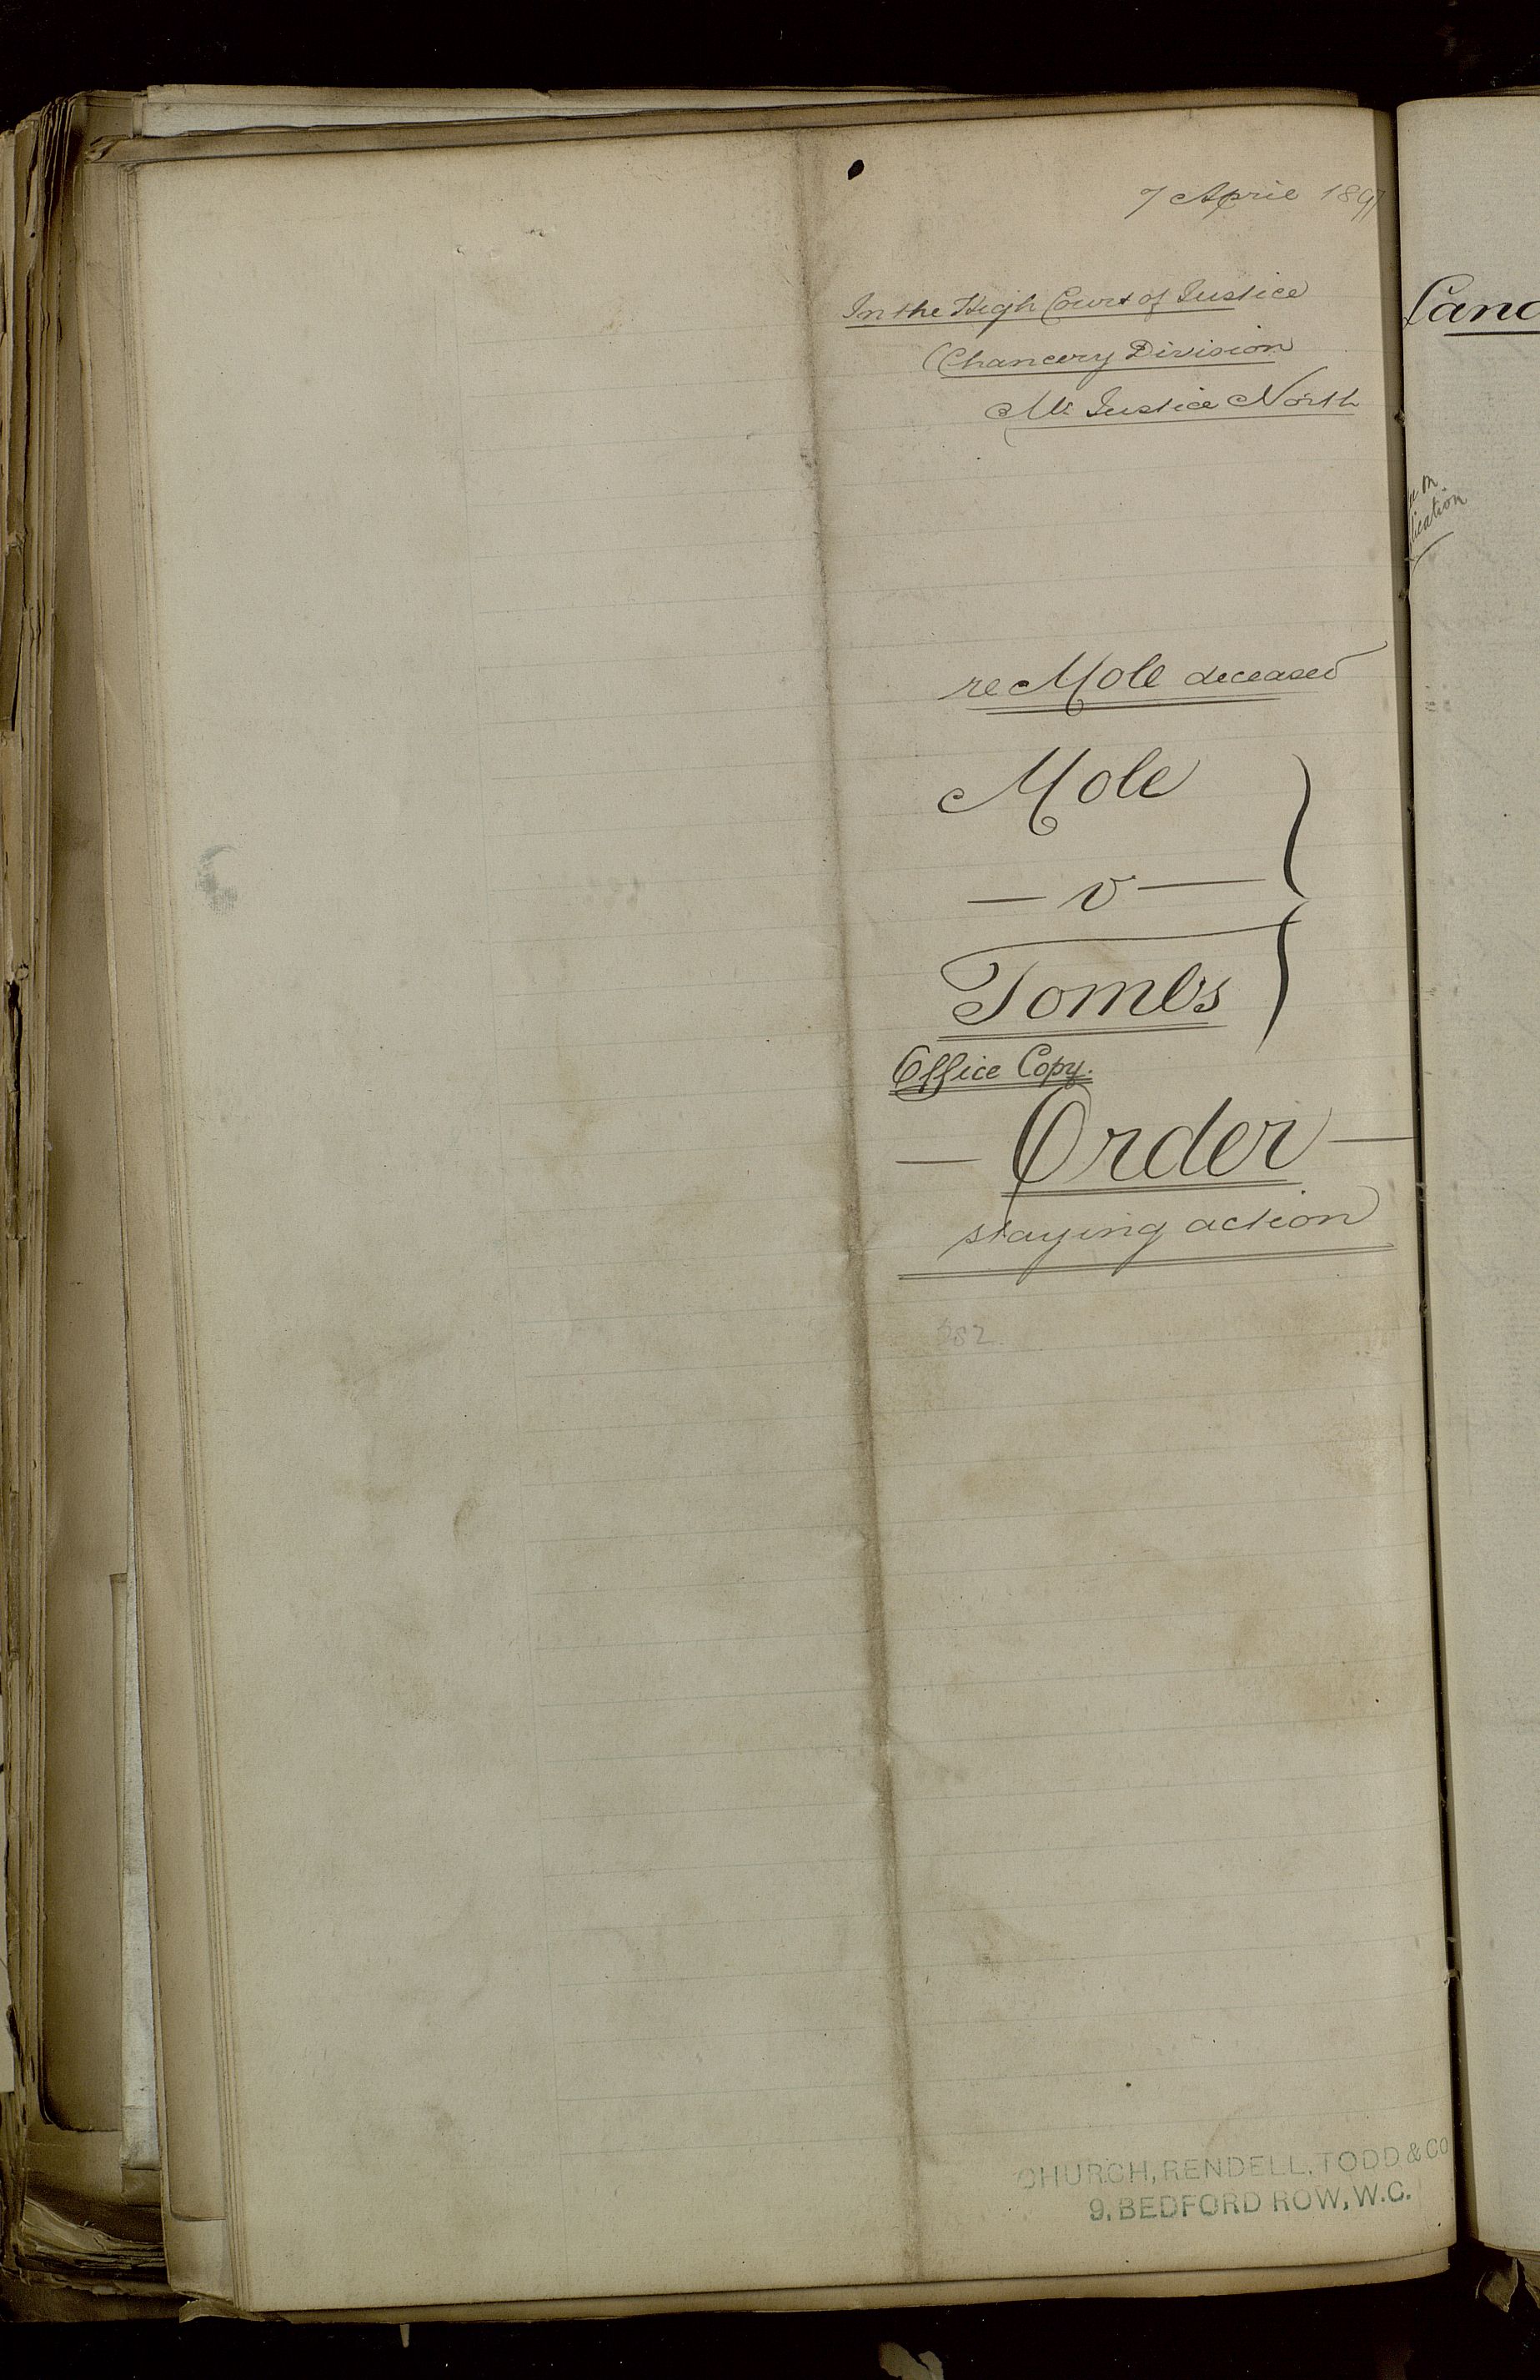 7 April 1897
In the High Court of Justice
Chancery Division
Mr Justice North
re Mole deceased
Mole
— v —
Tombs
Office Copy.
— Order —
staying action
382
CHURCH, RENDELL, TODD & CO
9, BEDFORD ROW, W.C.